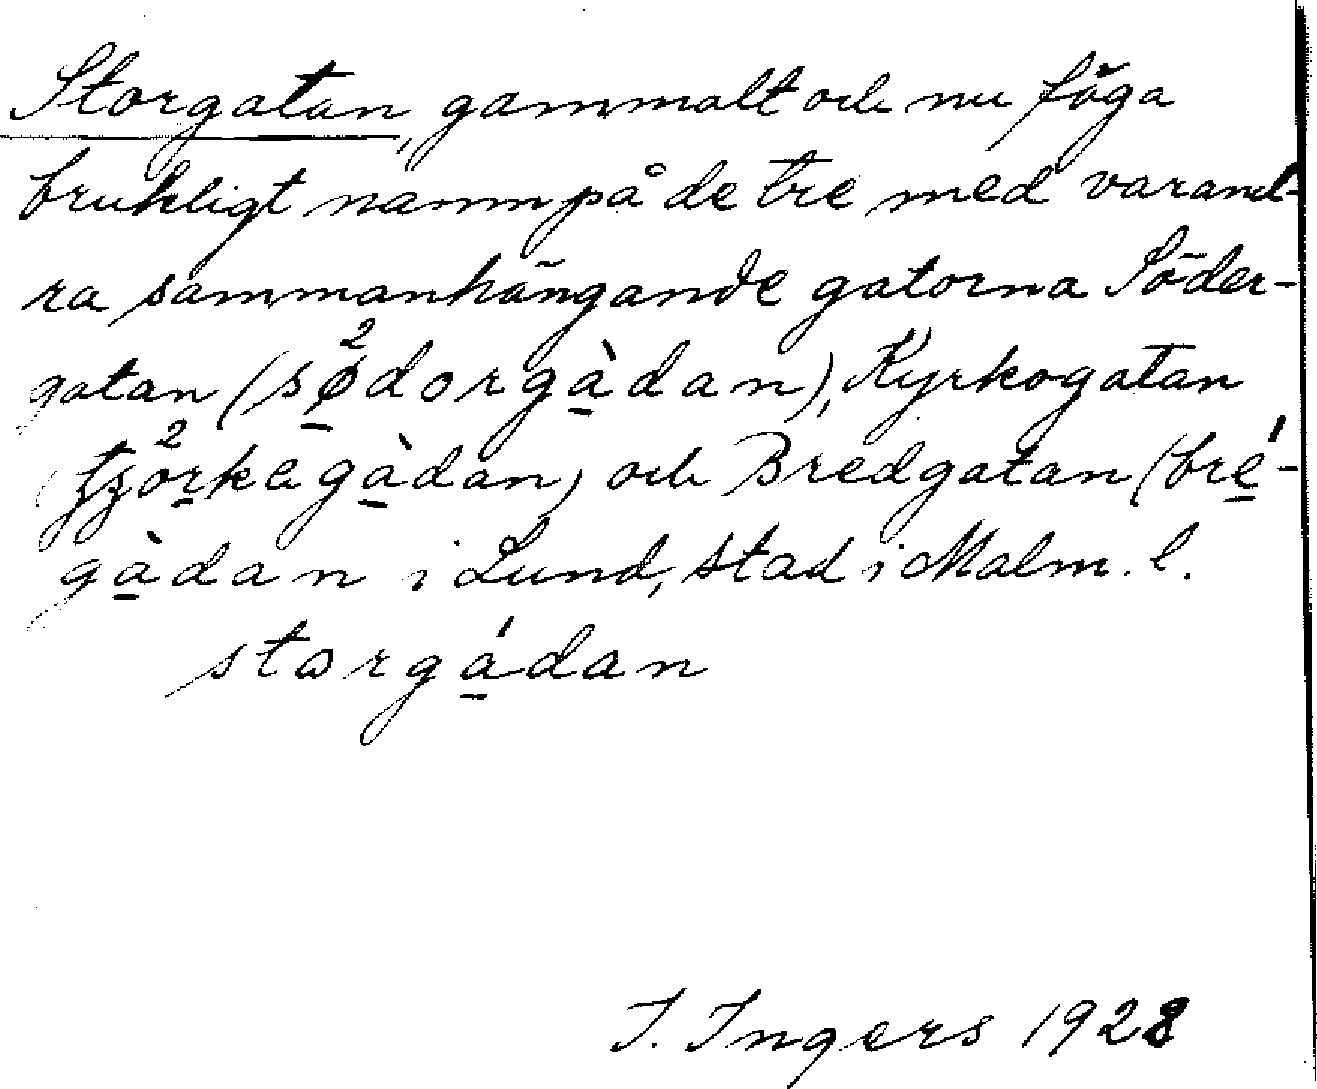 Storgatan, gammalt och nu föga
brukligt namn på de tre med varand-
ra sammanhängande gatorna Söder-
gatan (sø²dorgàdan), Kyrkogatan
(tjö²rkegàdan) och Bredgatan (bré-
gàdan i Lund, stad i Malm. l.
storgádan
I. Ingers 1928